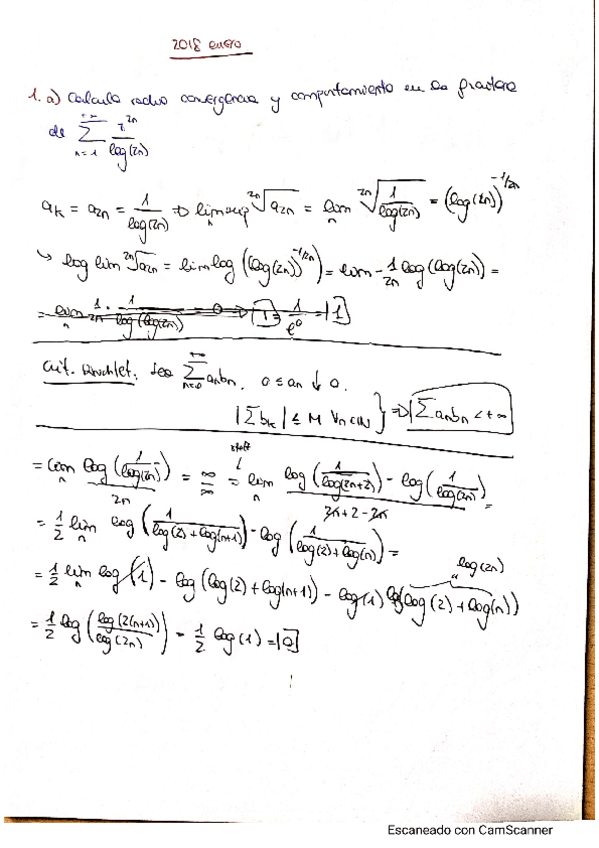 2018 enero
1. a) Calcula radio convergencia y comportamiento en la frontera
de \sum_{n=1}^{+\infty} \frac{z^{2n}}{log(2n)}
a_k = a_{2n} = \frac{1}{log(2n)} ⇒ lim sup_n \sqrt[2n]{a_{2n}} = lim_n \sqrt[2n]{\frac{1}{log(2n)}} = (log(2n))^{-1/2n}
↳ log lim \sqrt[2n]{a_{2n}} = lim log ((log(2n))^{-1/2n}) = lim - \frac{1}{2n} log(log(2n)) =
Crit. Dirichlet: Sea \sum_{n=0}^{+\infty} a_n b_n, 0 ≤ a_n ↓ 0.
|∑ b_k| ≤ M ∀n∈ℕ } ⇒ |∑ a_n b_n < +∞
= lim_n \frac{log(\frac{1}{log(2n)})}{2n} = \frac{∞}{∞} = lim_n \frac{log(\frac{1}{log(2n+2)}) - log(\frac{1}{log(2n)})}{2n+2-2n} =
= \frac{1}{2} lim_n log(\frac{1}{log(2)+log(n+1)}) - log(\frac{1}{log(2)+log(n)}) =
log(2n)
= \frac{1}{2} lim_n log(1) - log(log(2)+log(n+1)) - log(1) log(log(2)+log(n))
= \frac{1}{2} log(\frac{log(2(n+1))}{log(2n)}) = \frac{1}{2} log(1) = |0|
Escaneado con CamScanner